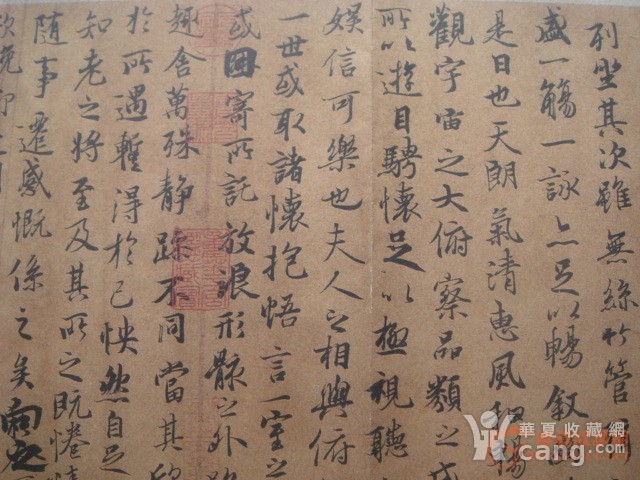 列坐其次雖無絲竹管
盛一觴一詠亦足以暢敘
是日也天朗氣清惠風和暢
觀宇宙之大俯察品類之
所以遊目騁懷足以極視聽
娛信可樂也夫人之相與俯
一世或取諸懷抱悟言一室之
或因寄所託放浪形骸之外
趣舍萬殊静躁不同當其
於所遇暫得於己怏然自足
知老之將至及其所之既惓
隨事遷感慨係之矣向之
欣俛仰之間
華夏收藏網